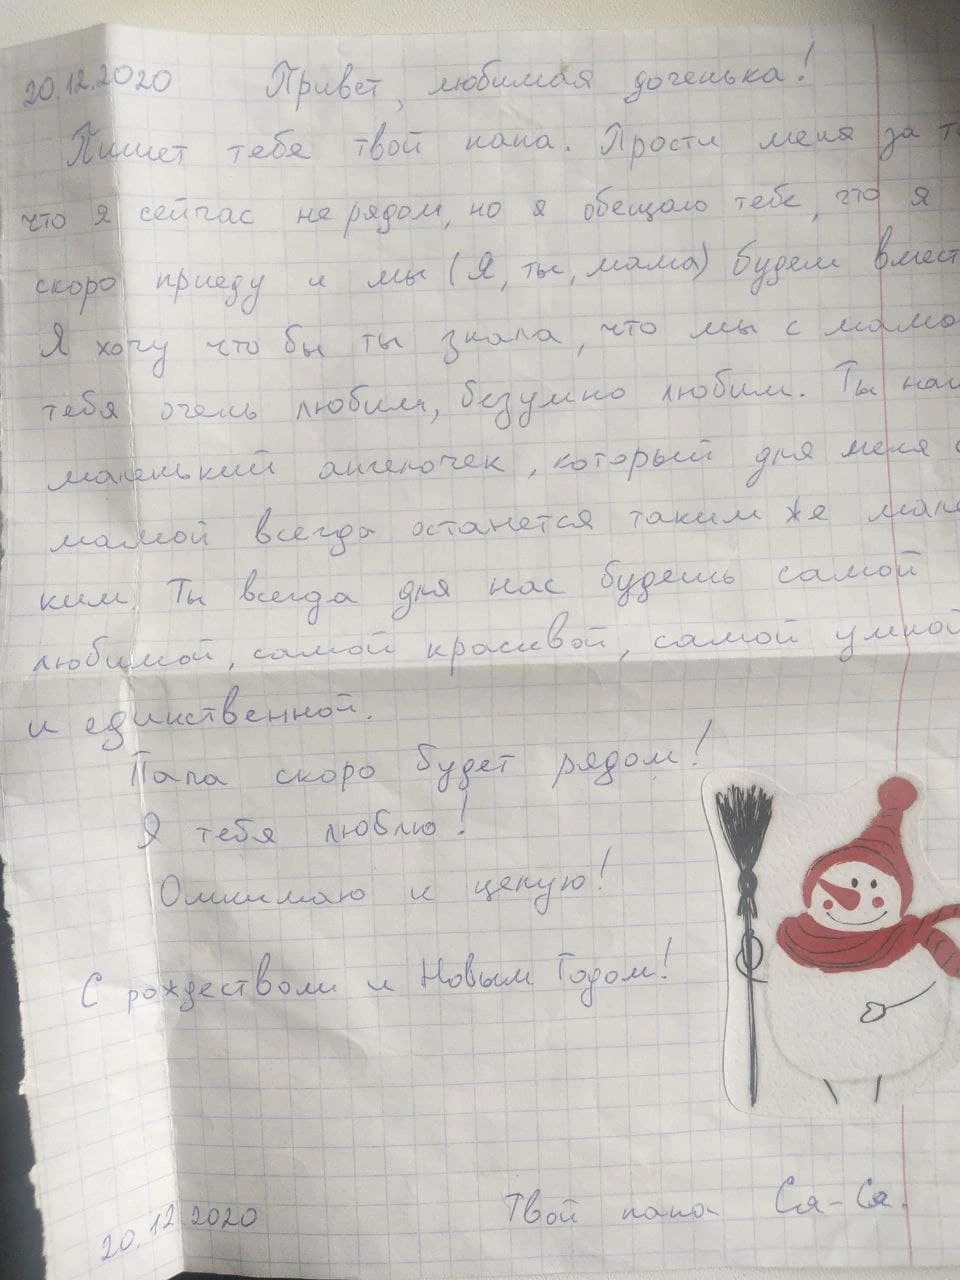 20.12.2020 Привет, любимая доченька!
Пишет тебе твой папа. Прости меня за т
что я сейчас не рядом, но я обещаю тебе, что я
скоро приеду и мы (Я, ты, мама) будем вмест
Я хочу что бы ты знала, что мы с мамо
тебя очень любим, безумно любим. Ты наш
маленький ангелочек, который для меня с
мамой всегда останется таким же мале
ким. Ты всегда для нас будешь самой
любимой, самой красивой, самой умной
и единственной.
Папа скоро будет рядом!
Я тебя люблю!
Омнимаю и целую!
С рождеством и Новым Годом!
Твой папа Ся-Ся.
20.12.2020